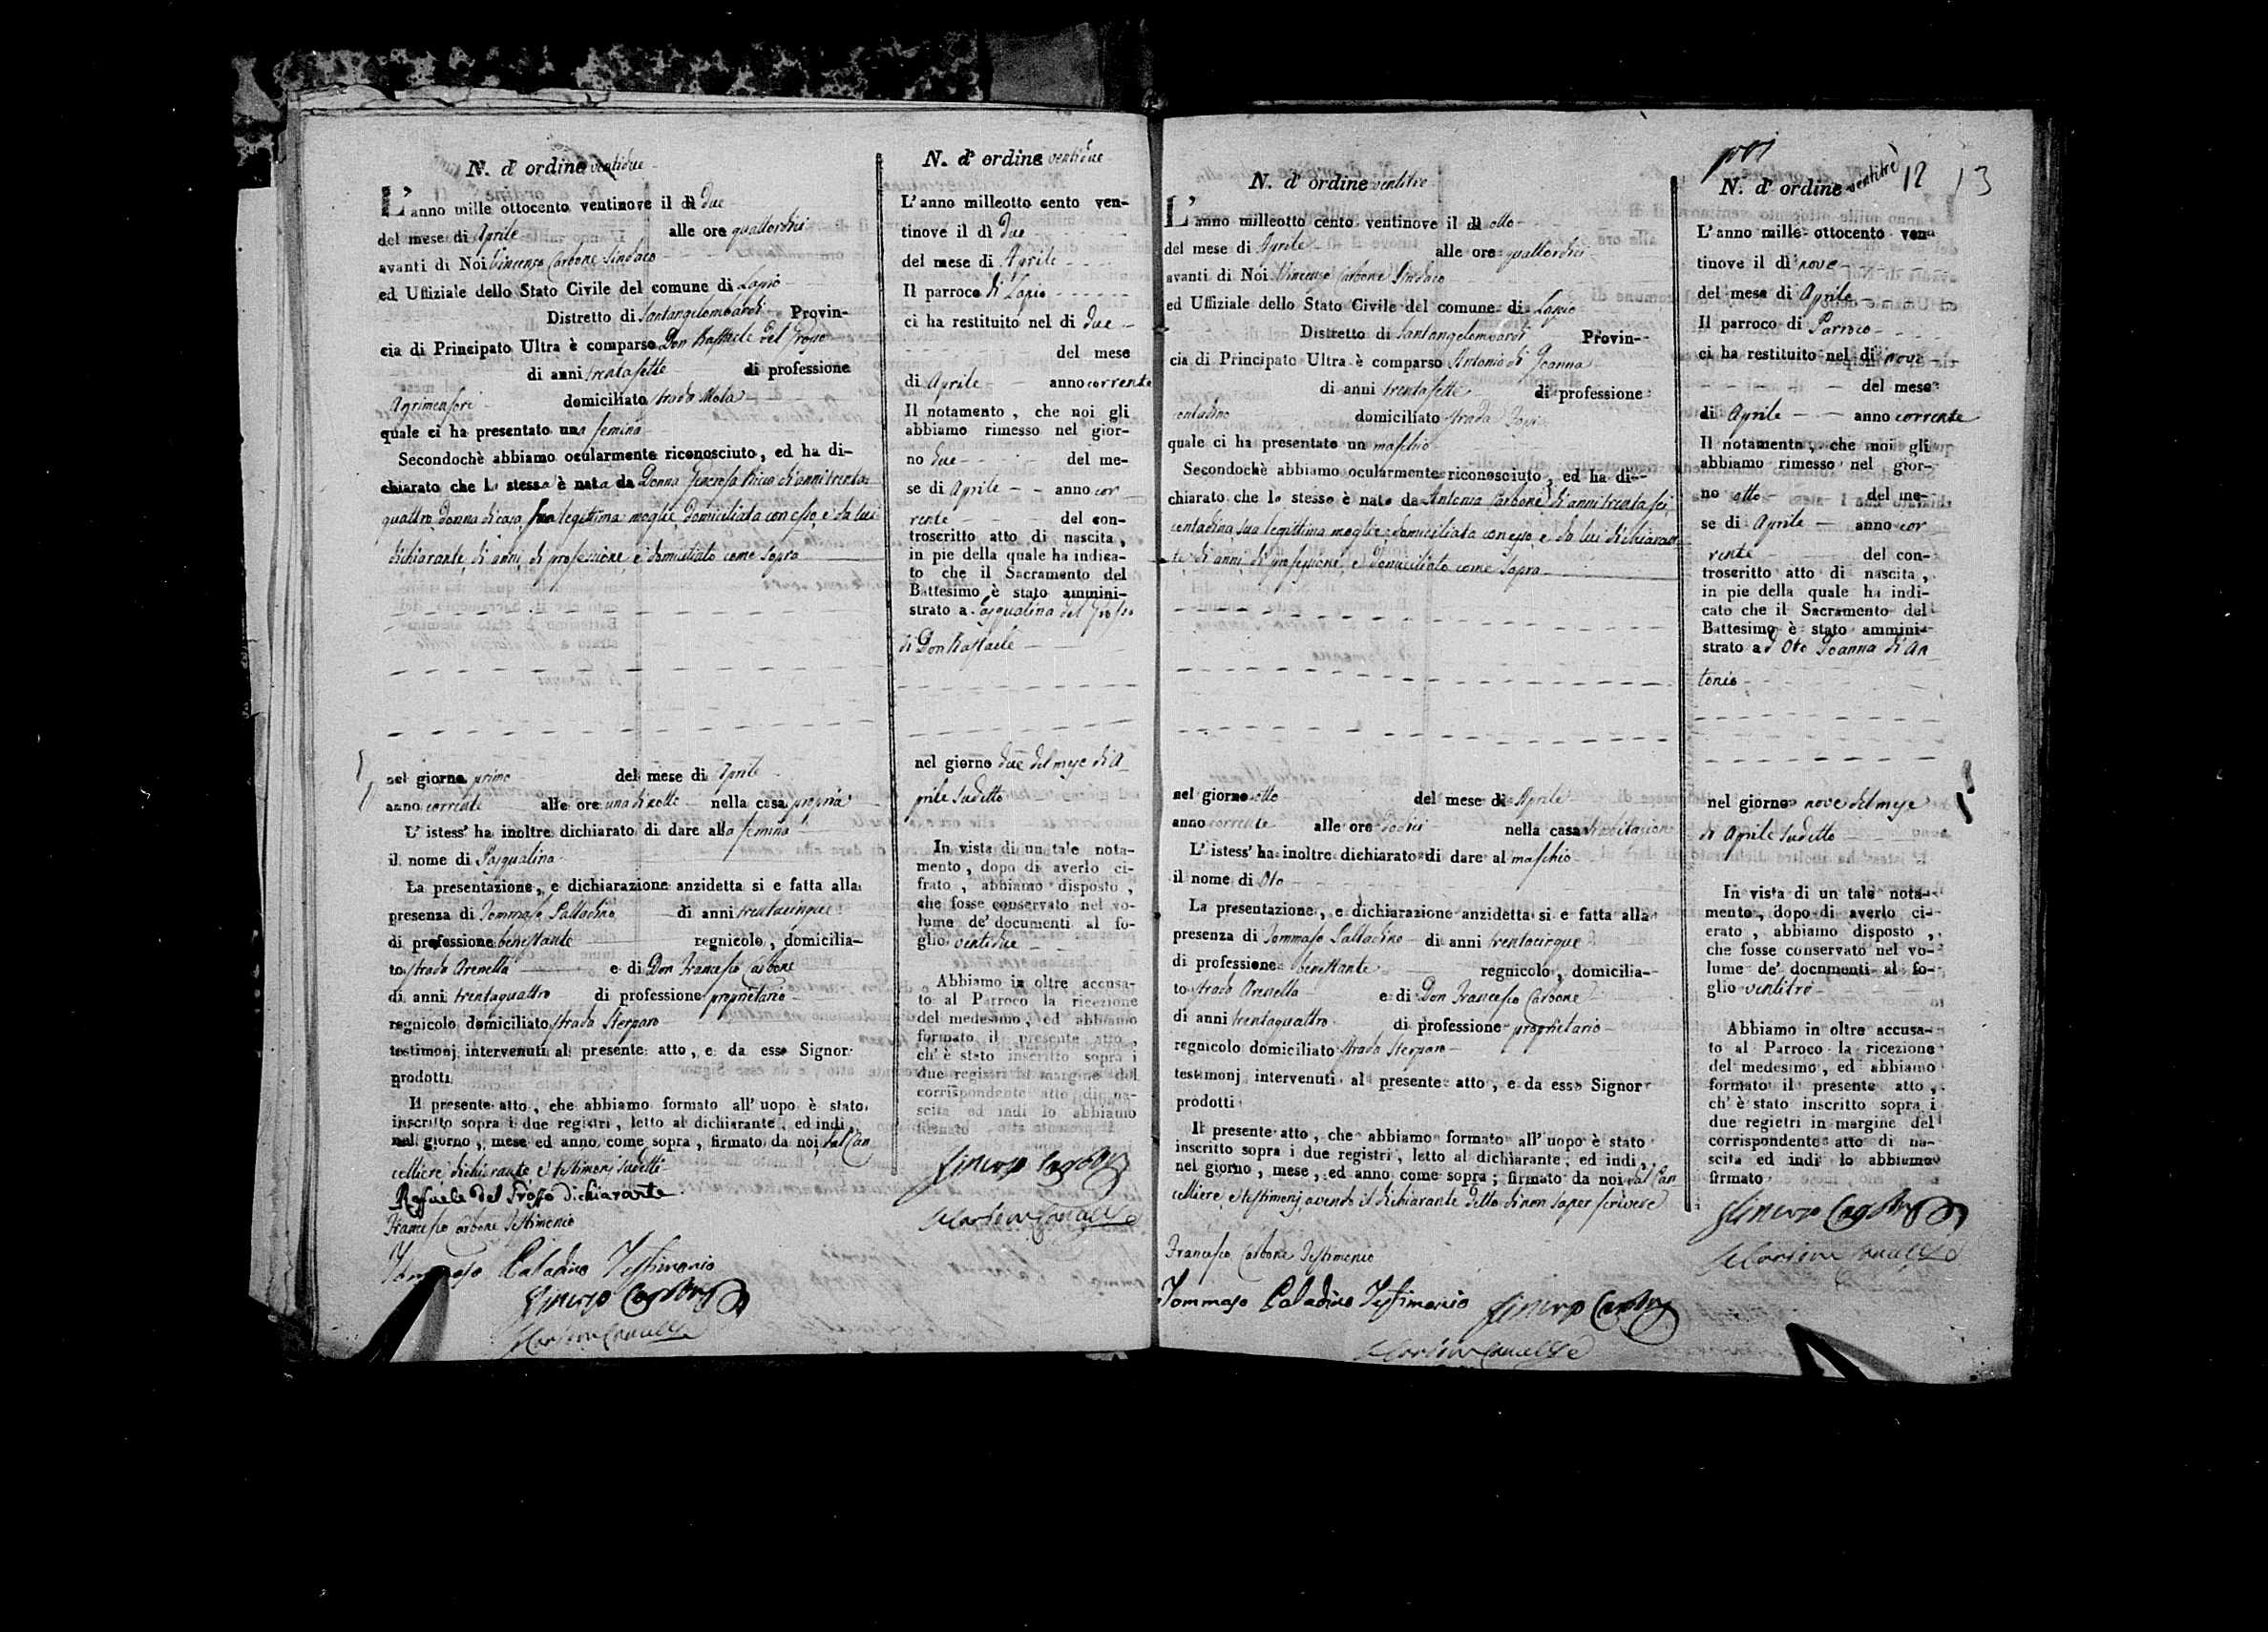 N. d' ordine ventidue
L'anno mille ottocento ventinove il dì due
del mese di Aprile alle ore quattordici
avanti di Noi Vincenzo Carbone Sindaco
ed Uffiziale dello Stato Civile del comune di Lapio
Distretto di Santangelombardi Provin-
cia di Principato Ultra è comparso Don Raffaele del Grosso
di anni trentasette di professione
Agrimensore domiciliato strada Mola
quale ci ha presentato una femina
Secondochè abbiamo ocularmente riconosciuto, ed ha di-
chiarato che la stessa è nata da Donna di anni trenta-
quattro, donna di casa, sua legittima moglie, domiciliata con esso, e da lui
dichiarante, di anni, di professione, e domiciliato come sopra
nel giorno primo del mese di Aprile
anno corrente alle ore una di notte nella casa propria
L' istess' ha inoltre dichiarato di dare alla femina
il nome di Pasqualina
La presentazione, e dichiarazione anzidetta si e fatta alla
presenza di Tommaso Palladino di anni trentacinque
di professione benestante regnicolo, domicilia-
to strada Arenella e di Don Francesco Carbone
di anni trentaquattro di professione proprietario
regnicolo domiciliato strada Sterparo
testimonj intervenuti al presente atto, e da esso Signor
prodotti
Il presente atto, che abbiamo formato all' uopo è stato
inscritto sopra i due registri, letto al dichiarante, ed indi
nel giorno, mese ed anno come sopra, firmato da noi, dal Can
celliere dichiarante e testimonj sudetti
Raffaele del Grosso dichiarante
Francesco Carbone Testimonio
Tommaso Paladino Testimonio
N. d' ordine ventidue
L' anno milleotto cento ven-
tinove il dì due
del mese di Aprile
Il parroco di Lapio
ci ha restituito nel di due
del mese
di Aprile anno corrente
Il notamento, che noi gli
abbiamo rimesso nel gior-
no due del me-
se di Aprile anno cor
rente del con-
troscritto atto di nascita,
in pie della quale ha indica-
to che il Sacramento del
Battesimo è stato ammini-
strato a Pasqualina del Grosso
di Don Raffaele
nel giorno due del mese di A
prile sudetto
In vista di un tale nota-
mento, dopo di averlo ci-
frato, abbiamo disposto,
che fosse conservato nel vo-
lume de' documenti al fo-
glio ventidue
Abbiamo in oltre accusa-
to al Parroco la ricezione
del medesimo, ed abbiamo
formato il presente atto,
ch' è stato inscritto sopra i
due registri in margine del
corrispondente atto di na-
scita ed indi lo abbiamo
firmato
N. d' ordine ventitre
L' anno milleotto cento ventinove il dì otto
del mese di Aprile alle ore quattordici
avanti di Noi Vincenzo Carbone Sindaco
ed Uffiziale dello Stato Civile del comune di Lapio
Distretto di Santangelombardi Provin-
cia di Principato Ultra è comparso Antonio di Joanna
di anni trentasette di professione
contadino domiciliato strada
quale ci ha presentato un maschio
Secondochè abbiamo ocularmente riconosciuto, ed ha di-
chiarato che lo stesso è nato da Antonia Carbone di anni trentasei,
contadina, sua legittima moglie, domiciliata con esso, e da lui dichiaran-
te, di anni, di professione, e domiciliato come sopra
nel giorno otto del mese di Aprile
anno corrente alle ore dodici nella casa d'abitazione
L' istess' ha inoltre dichiarato di dare al maschio
il nome di Oto
La presentazione, e dichiarazione anzidetta si e fatta alla
presenza di Tommaso Palladino di anni trentacinque
di professione benestante regnicolo, domicilia-
to strada Arenella e di Don Francesco Carbone
di anni trentaquattro di professione proprietario
regnicolo domiciliato strada Sterparo
testimonj intervenuti al presente atto, e da esso Signor
prodotti
Il presente atto, che abbiamo formato all' uopo è stato
inscritto sopra i due registri, letto al dichiarante, ed indi
nel giorno, mese, ed anno come sopra; firmato da noi dal Can
celliere, e testimonj, avendo il dichiarante detto di non saper scrivere
Francesco Carbone Testimonio
Tommaso Paladino Testimonio
12 13
N. d' ordine ventitrè
L' anno mille ottocento ven-
tinove il dì nove
del mese di Aprile
Il parroco di Parroco
ci ha restituito nel di nove
del mese
di Aprile anno corrente
Il notamento, che noi gli
abbiamo rimesso nel gior-
no otto del me-
se di Aprile anno cor
rente del con-
troscritto atto di nascita,
in pie della quale ha indi-
cato che il Sacramento del
Battesimo è stato ammini-
strato ad Oto Joanna di An
tonio
nel giorno nove del mese
di Aprile sudetto
In vista di un tale nota-
mento, dopo di averlo ci-
erato, abbiamo disposto,
che fosse conservato nel vo-
lume de' documenti al fo-
glio ventitrè
Abbiamo in oltre accusa-
to al Parroco la ricezione
del medesimo, ed abbiamo
formato il presente atto,
ch' è stato inscritto sopra i
due regietri in margine del
corrispondente atto di na-
scita ed indi lo abbiamo
firmato